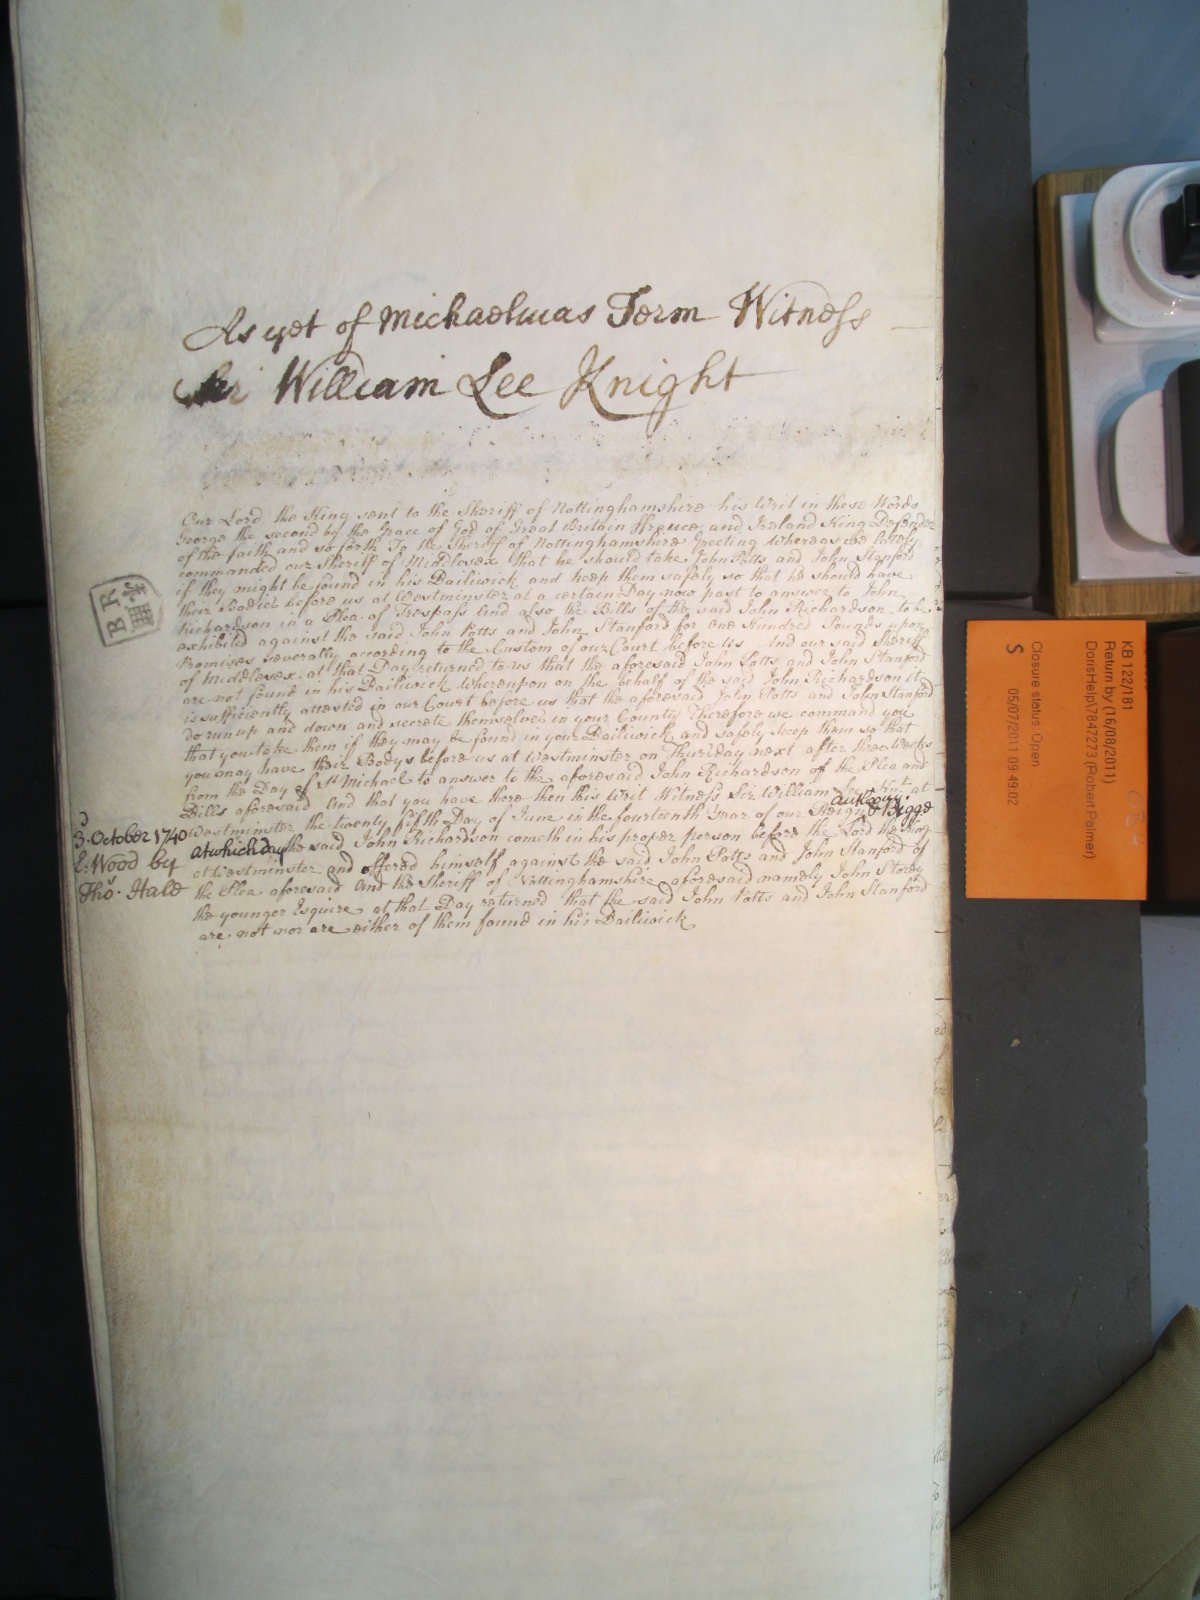 As yet of Michaelmas Term Witness
Sir William Lee Knight
Our Lord the King sent to the Sheriff of Nottinghamshire his Writ in these Words
George the second by the Grace of God of Great Britain ffrance and Ireland King Defender
of the faith and so forth To the Sheriff of Nottinghamshire Greeting Whereas we lately
commanded our Sheriff of Middlesex that he should take John Potts and John Stanford
if they might be found in his Bailiwick and keep them safely so that he should have
their Bodies before us at Westminster at a certain Day now past to answer to John
Richardson in a Plea of Trespass And also the Bills of the said John Richardson to be
exhibited against the said John Potts and John Stanford for one Hundred Pounds upon
Promises severally according to the Custom of our Court before us And our said Sheriff
of Middlesex at that Day returned to us that the aforesaid John Potts and John Stanford
are not found in his Bailiwick whereupon on the behalf of the said John Richardson it
is sufficiently attested in our Court before us that the aforesaid John Potts and John Stanford
do run up and down and secrete themselves in your County Therefore we command you
that you take them if they may be found in your Bailiwick and safely keep them so that
you may have their Bodys before us at Westminster on Thursday next after three Weeks
from the Day of St Michael to answer to the aforesaid John Richardson of the Plea and
Bills aforesaid And that you have there then this Writ Witness Sir William Lee Knt at
Westminster the twenty fifth Day of June in the fourteenth Year of our Reign & Bigge
At which day the said John Richardson cometh in his proper person before the Lord the King
at Westminster and offered himself against the said John Potts and John Stanford of
the Plea aforesaid And the Sheriff of Nottinghamshire aforesaid namely John Storey
the younger Esquire at that Day returned that the said John Potts and John Stanford
are not nor are either of them found in his Bailiwick
3. October 1740
E: Wood by
Tho. Hale
B R
KB 122/181
Return by (16/08/2011)
DorisHelp\7847273 (Robert Palmer)
Closure status: Open
S
05/07/2011 09:49:02